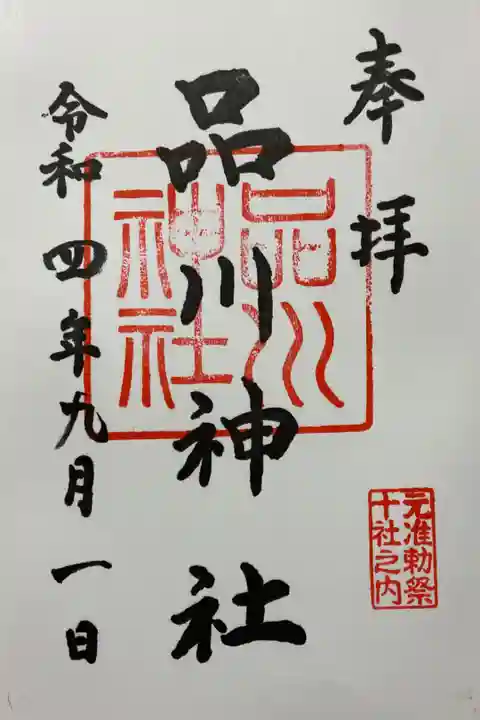 奉拝
元准勅祭
十社之内
品川神社
品川
神社
令和四年九月一日